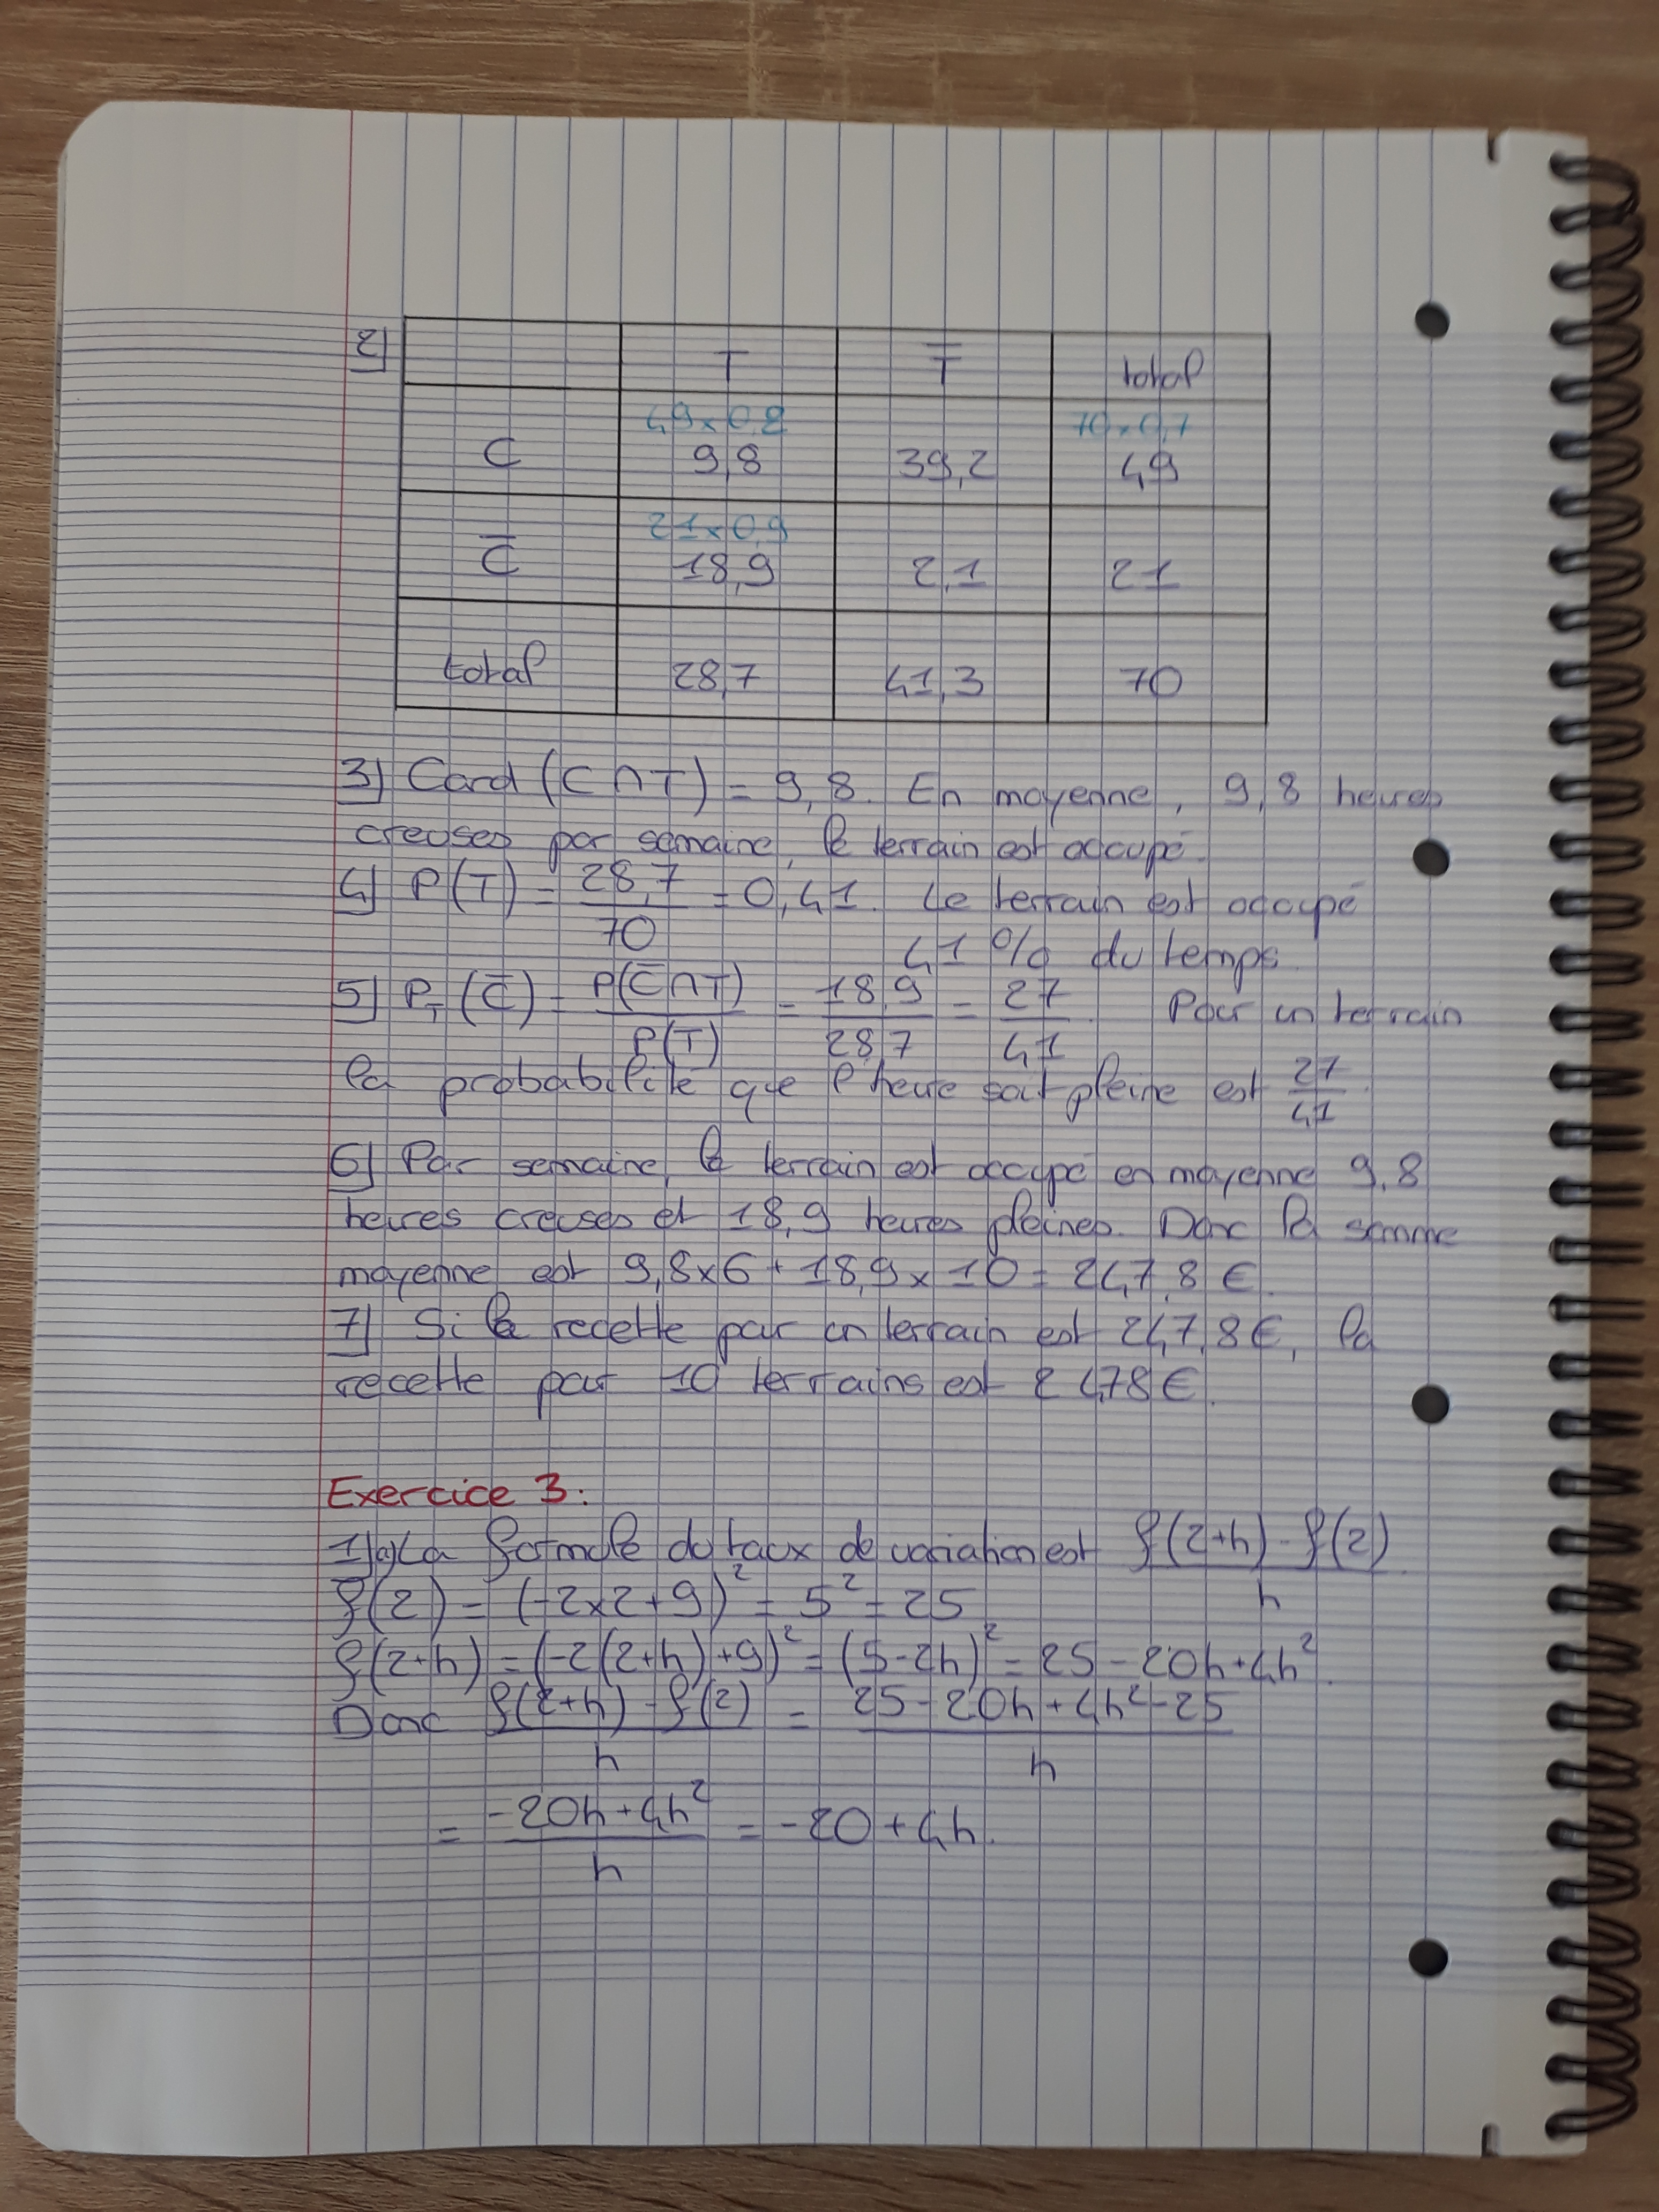 2) T T̅ total
49×0,2 70×0,7
C 9,8 39,2 49
21×0,9
C̅ 18,9 2,1 21
total 28,7 41,3 70
3) Card (C∩T) = 9,8. En moyenne, 9,8 heures
creuses par semaine, le terrain est occupé.
4) P(T) = 28,7/70 = 0,41. Le terrain est occupé
41 % du temps.
5) P_T(C̅) = P(C̅∩T)/P(T) = 18,9/28,7 = 27/41. Pour un terrain
la probabilité que l'heure soit pleine est 27/41.
6) Par semaine, le terrain est occupé en moyenne 9,8
heures creuses et 18,9 heures pleines. Donc la somme
moyenne est 9,8×6 + 18,9×10 = 247,8 €.
7) Si la recette par un terrain est 247,8 €, la
recette pour 10 terrains est 2478 €.
Exercice 3:
1)a) La formule du taux de variation est (f(2+h) - f(2))/h
f(2) = (-2×2+9)² = 5² = 25
f(2+h) = (-2(2+h)+9)² = (5-2h)² = 25 - 20h + 4h².
Donc (f(2+h) - f(2))/h = (25 - 20h + 4h² - 25)/h
= (-20h + 4h²)/h = -20 + 4h.